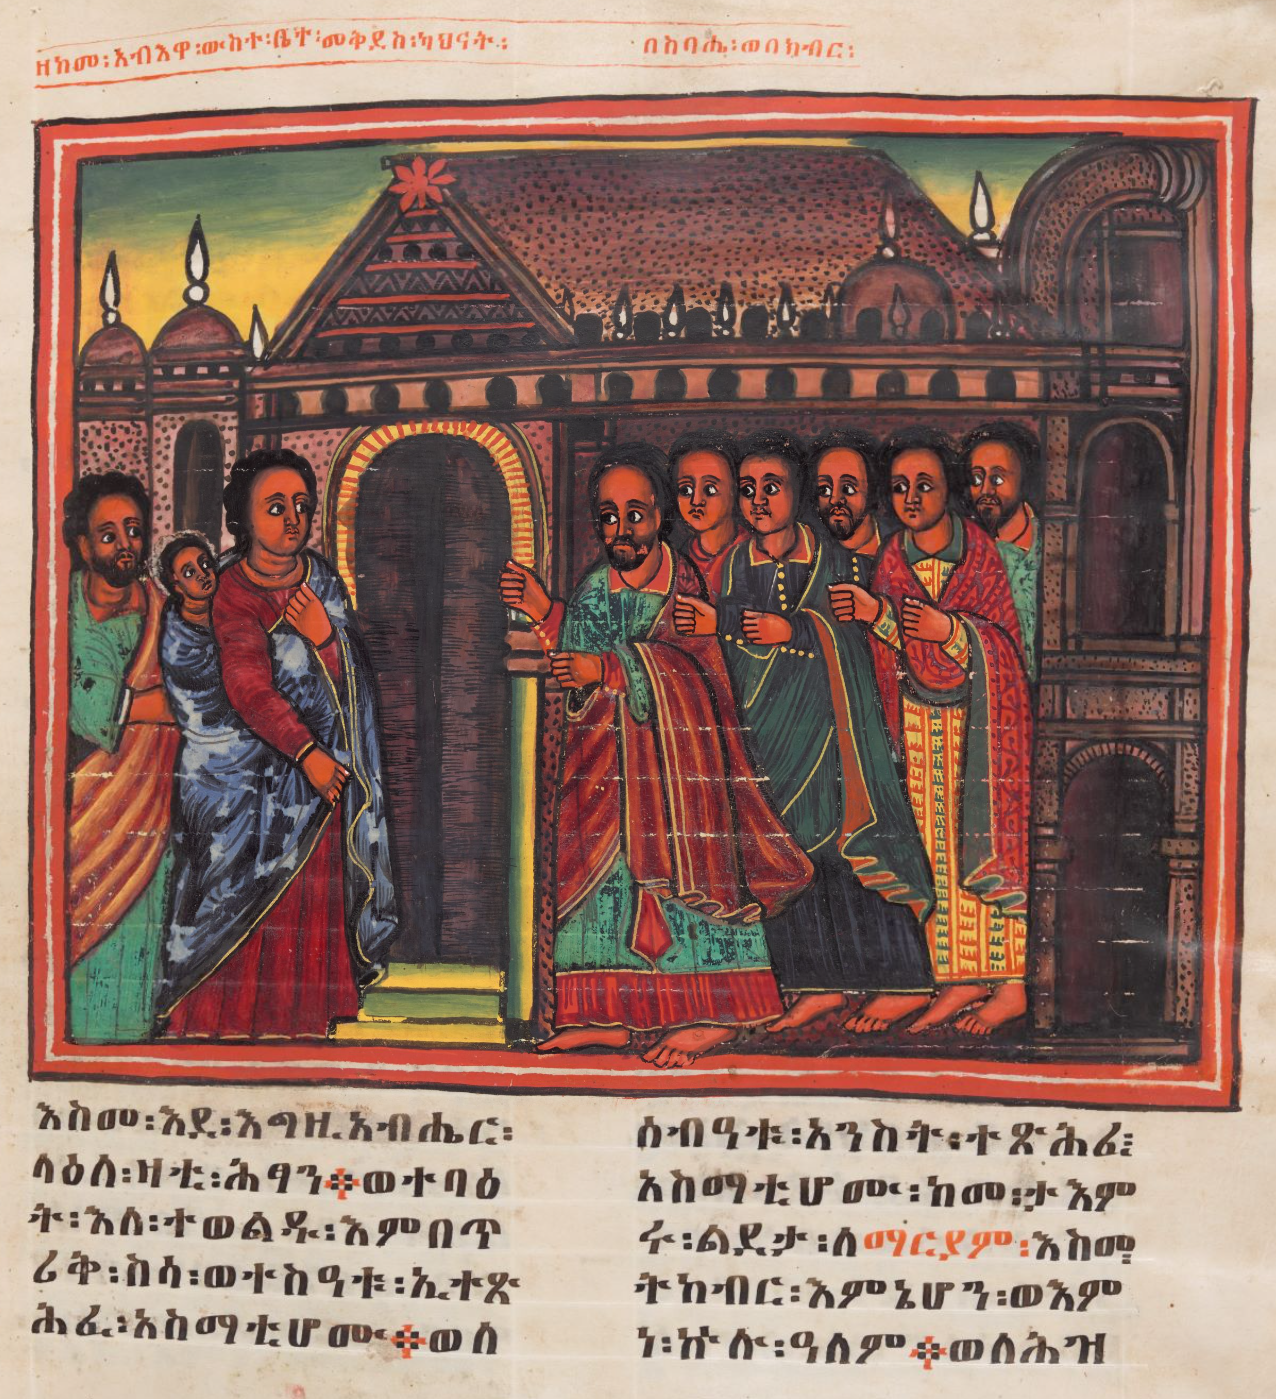 ዘከመ፡አብእዋ፡ውስተ፡ቤተ፡መቅደስ፡ካህናት፡
በስባሔ፡ወበክብር፡
እስመ፡እደ፡እግዚአብሔር፡
ላዕለ፡ዛቲ፡ሕፃን፨ወተባዕ
ት፡እለ፡ተወልዱ፡እምበጥ
ሪቅ፡ስሳ፡ወተስዓቱ፡ኢተጽ
ሕፈ፡አስማቲሆሙ፨ወሰ
ሰብዓቱ፡አንስት፡ተጽሕፈ፤
አስማቲሆሙ፡ከመ፡ታእም
ሩ፡ልደታ፡ለማርያም፡እስመ፡
ትከብር፡እምኔሆን፡ወእም
ነ፡ኵሉ፡ዓለም፨ወለሕዝ